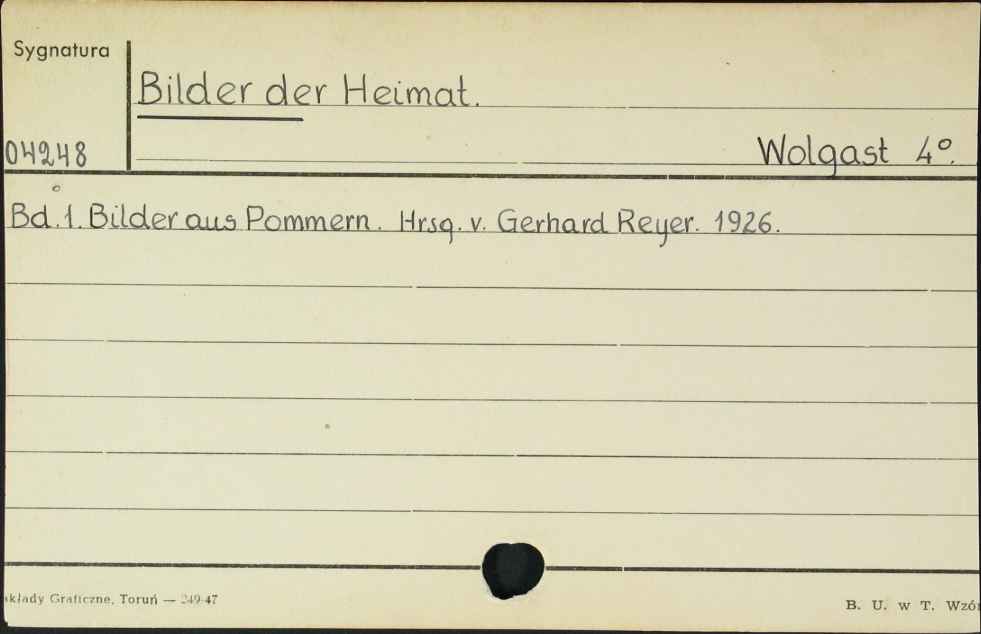 Sygnatura
Bilder der Heimat.
04248
Wolgast 4°.
Bd. 1. Bilder aus Pommern. Hrsg. v. Gerhard Reyer. 1926.
akłady Graficzne, Toruń — 249-47
B. U. w T. Wzór